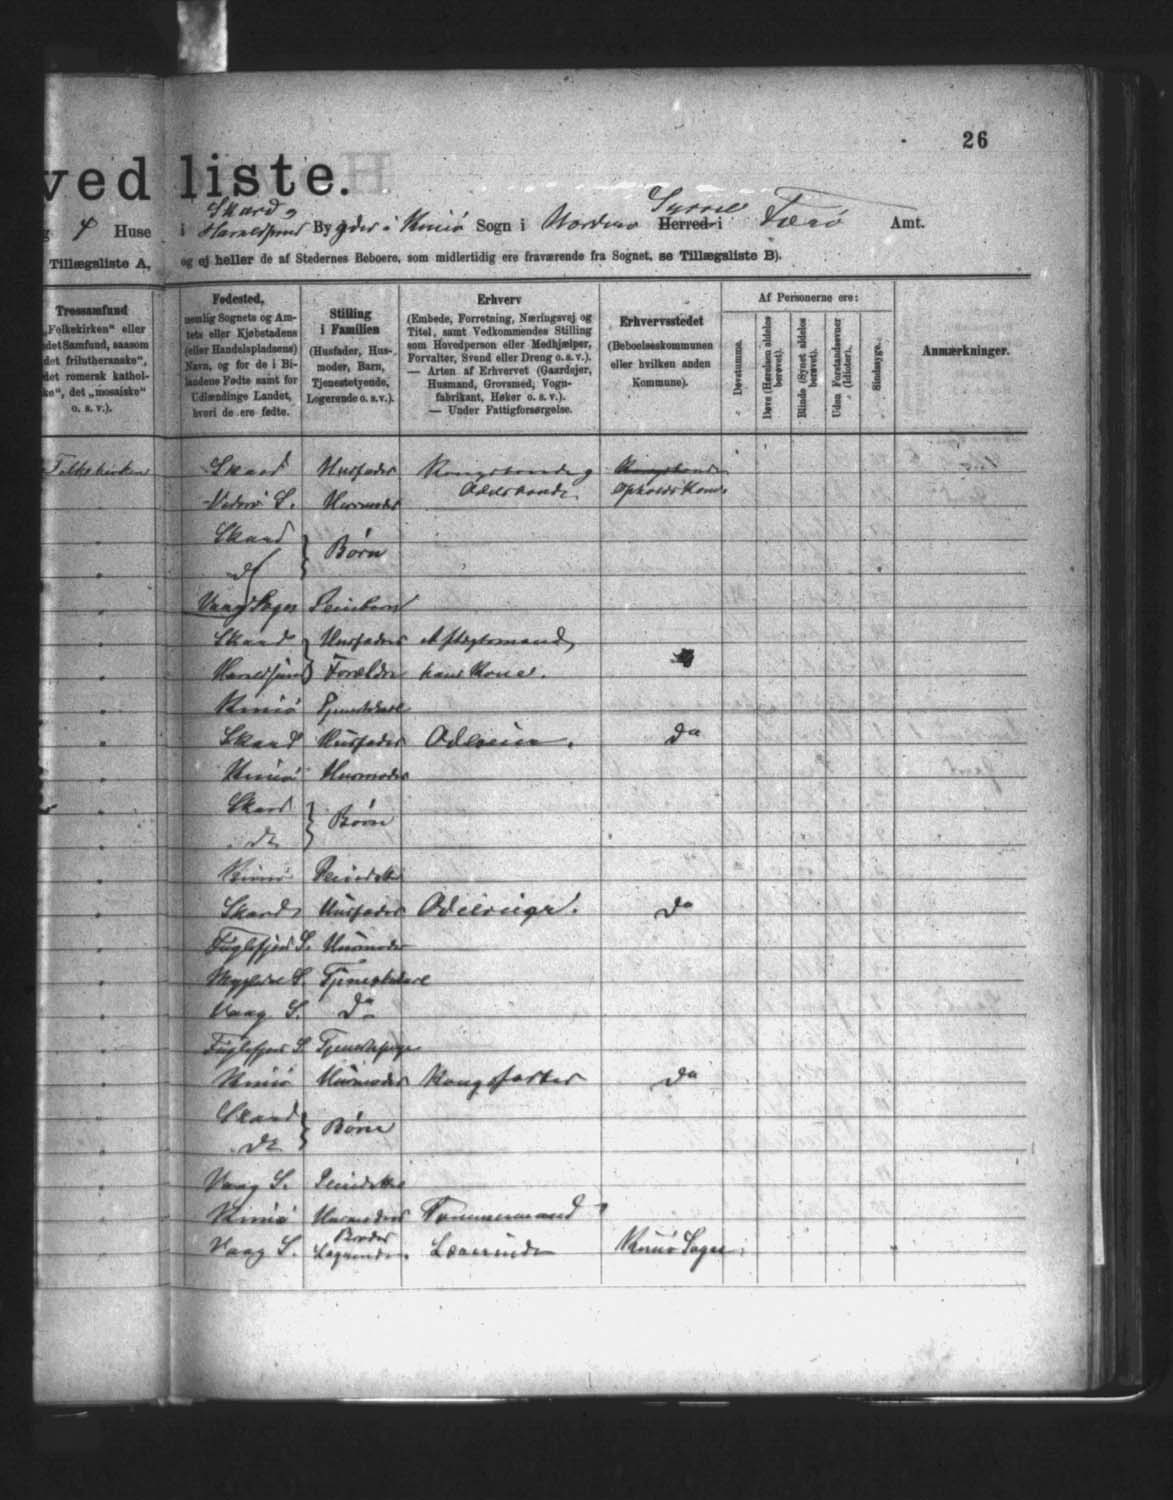 26
ved liste.
Skard
4 Huse i Haraldsund Bygder i Kunö Sogn i Norderø Syssel Herred i Færø Amt.
Tillægsliste A, og ej heller de af Stedernes Beboere, som midlertidig ere fraværende fra Sognet, se Tillægsliste B).
Trossamfund
„Folkekirken“ eller
det Samfund, saasom
det frilutheranske“,
det romersk kathol-
ke“, det „mosaiske“
o. s. v.).
Fødested,
nemlig Sognets og Am-
tets eller Kjøbstadens
(eller Handelspladsens)
Navn, og for de i Bi-
landene Fødte samt for
Udlændinge Landet,
hvori de ere fødte.
Stilling
i Familien
(Husfader, Hus-
moder, Barn,
Tjenestetyende,
Logerende o. s. v.).
Erhverv
(Embede, Forretning, Næringsvej og
Titel, samt Vedkommendes Stilling
som Hovedperson eller Medhjælper,
Forvalter, Svend eller Dreng o. s. v.).
— Arten af Erhvervet (Gaardejer,
Husmand, Grovsmed, Vogn-
fabrikant, Høker o. s. v.).
— Under Fattigforsørgelse.
Erhvervsstedet
(Beboelseskommunen
eller hvilken anden
Kommune).
Af Personerne ere:
Døvstumme.
Døve (Hørelsen aldeles
berøvet).
Blinde (Synet aldeles
berøvet).
Uden Forstandsevner
(Idioter).
Sindssyge.
Anmærkninger.
Folkekirken Skaard Husfader Kongsbonde og Kongsbonde
Viderø S. Husmoder Odelsbonde Opholds Kom.
Skaard } Børn
do
Vaag Sogn
Skaard } Husfaders Aftægtsmand,
Haraldsund } Forældre hans Kone.
Kunö Tjenestekarl
Skaard Husfader Odelseier. do
Kunö Husmoder
Skaard } Børn
do
Kunö
Skaard Husfader Odelseier. do
Fuglefjord S. Husmoder
S. Tjenestekarl
Vaag S. do
Fuglefjord S. Tjenestepige
Kunö Husmoder Kongsfæster do
Skaard } Børn
do
Vaag S.
Kunö Husmoders Tømmermand
Broder
Vaag S. Logerende. Lærerinde Kunö Sogn.